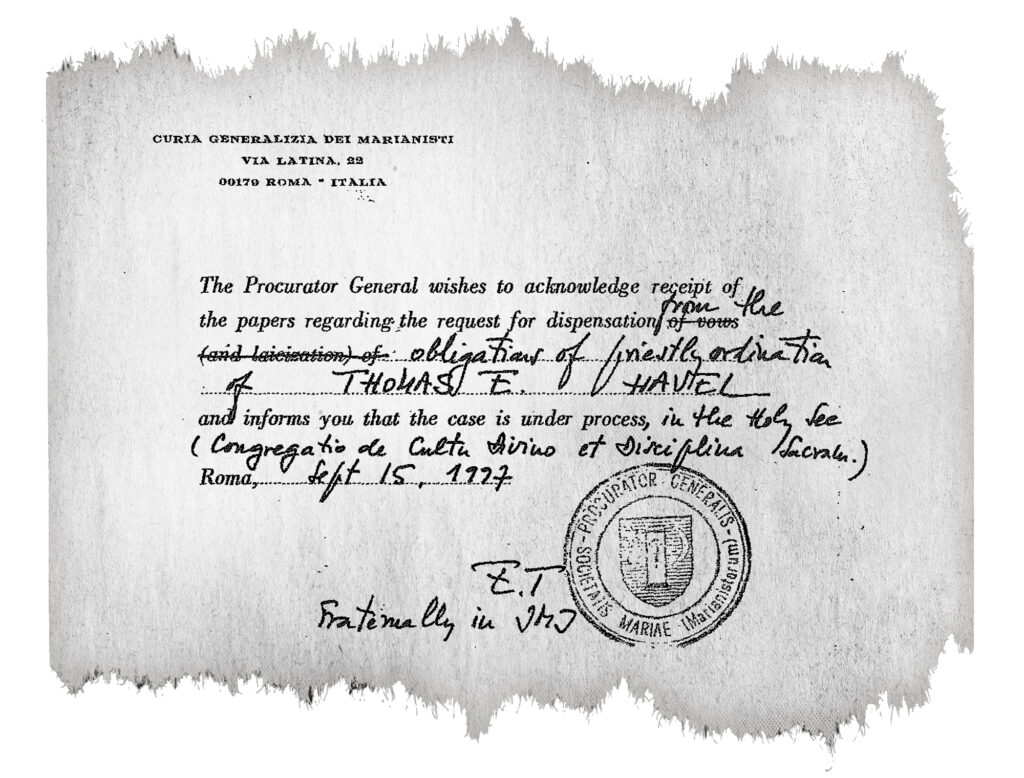 CURIA GENERALIZIA DEI MARIANISTI
VIA LATINA, 22
00179 ROMA - ITALIA
The Procurator General wishes to acknowledge receipt of
the papers regarding the request for dispensation of vows from the
(and laicization) of obligations of priestly ordination
of THOMAS E. HAVEL
and informs you that the case is under process, in the Holy See
(Congregatio de Cultu Divino et Disciplina Sacram.)
Roma, Sept 15, 1997
E.T
Fraternally in JMJ
PROCURATOR GENERALIS - (Marianistarum)
SOCIETATIS MARIAE